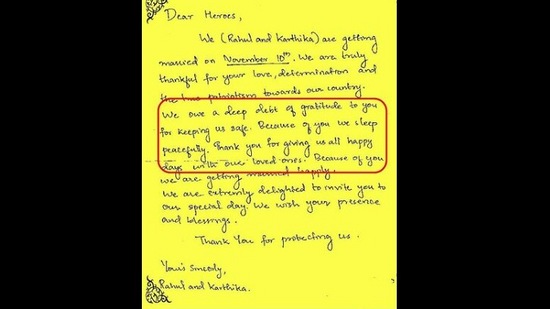 Dear Heroes,
We (Rahul and Karthika) are getting
married on November 10th. We are truly
thankful for your love, determination and
the true patriotism towards our country.
We owe a deep debt of gratitude to you
for keeping us safe. Because of you we sleep
peacefully. Thank you for giving us all happy
days with our loved ones. Because of you
we are getting married happily.
We are extremly delighted to invite you to
our special day. We wish your presence
and blessings.
Thank You for protecting us.
Your's Sincerely,
Rahul and Karthika.